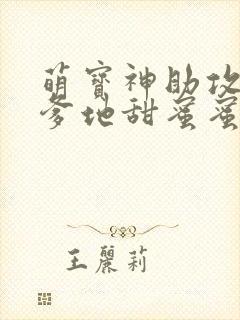 萌寳神助攻
爹地甜蜜蜜
王麗莉